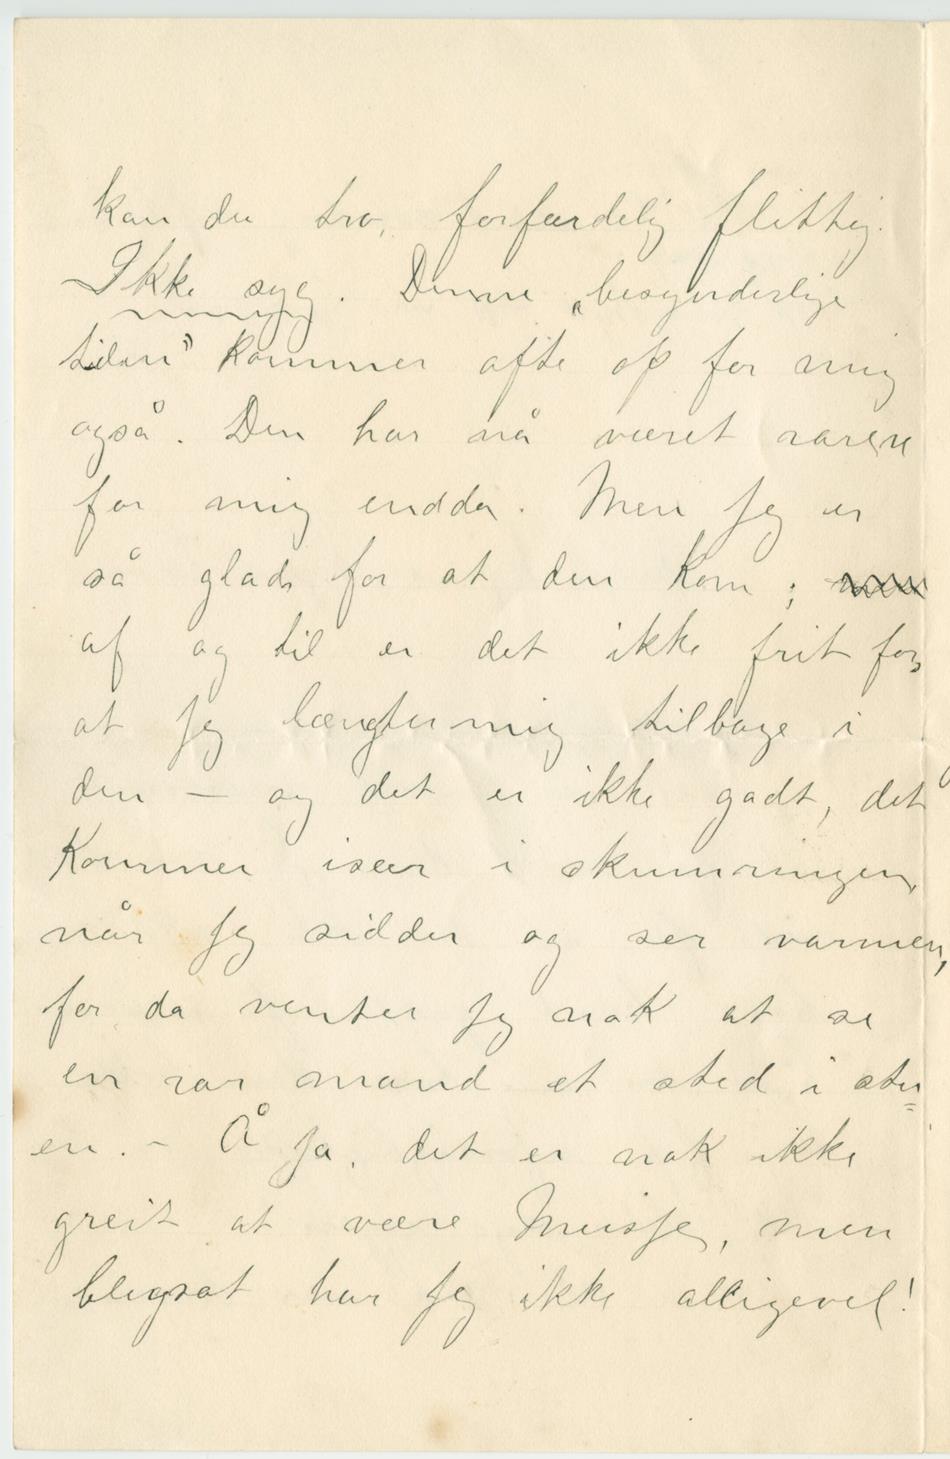 kan du tro, forfærdelig flittig.
Ikke syg. Denne „besynderlige
tiden” kommer ofte op for mig
også. Den har nå været rarere
for mig endda. Men jeg er
så glad for at den kom;
af og til er det ikke frit for,
at jeg længter mig tilbage i
den — og det er ikke godt, det
kommer især i skumringen,
når jeg sidder og ser varmen,
for da venter jeg nok at se
en rar mand et sted i stu=
en. - Å ja, det er nok ikke
greit at være Muisje, men
blegsot har jeg ikke alligevel!